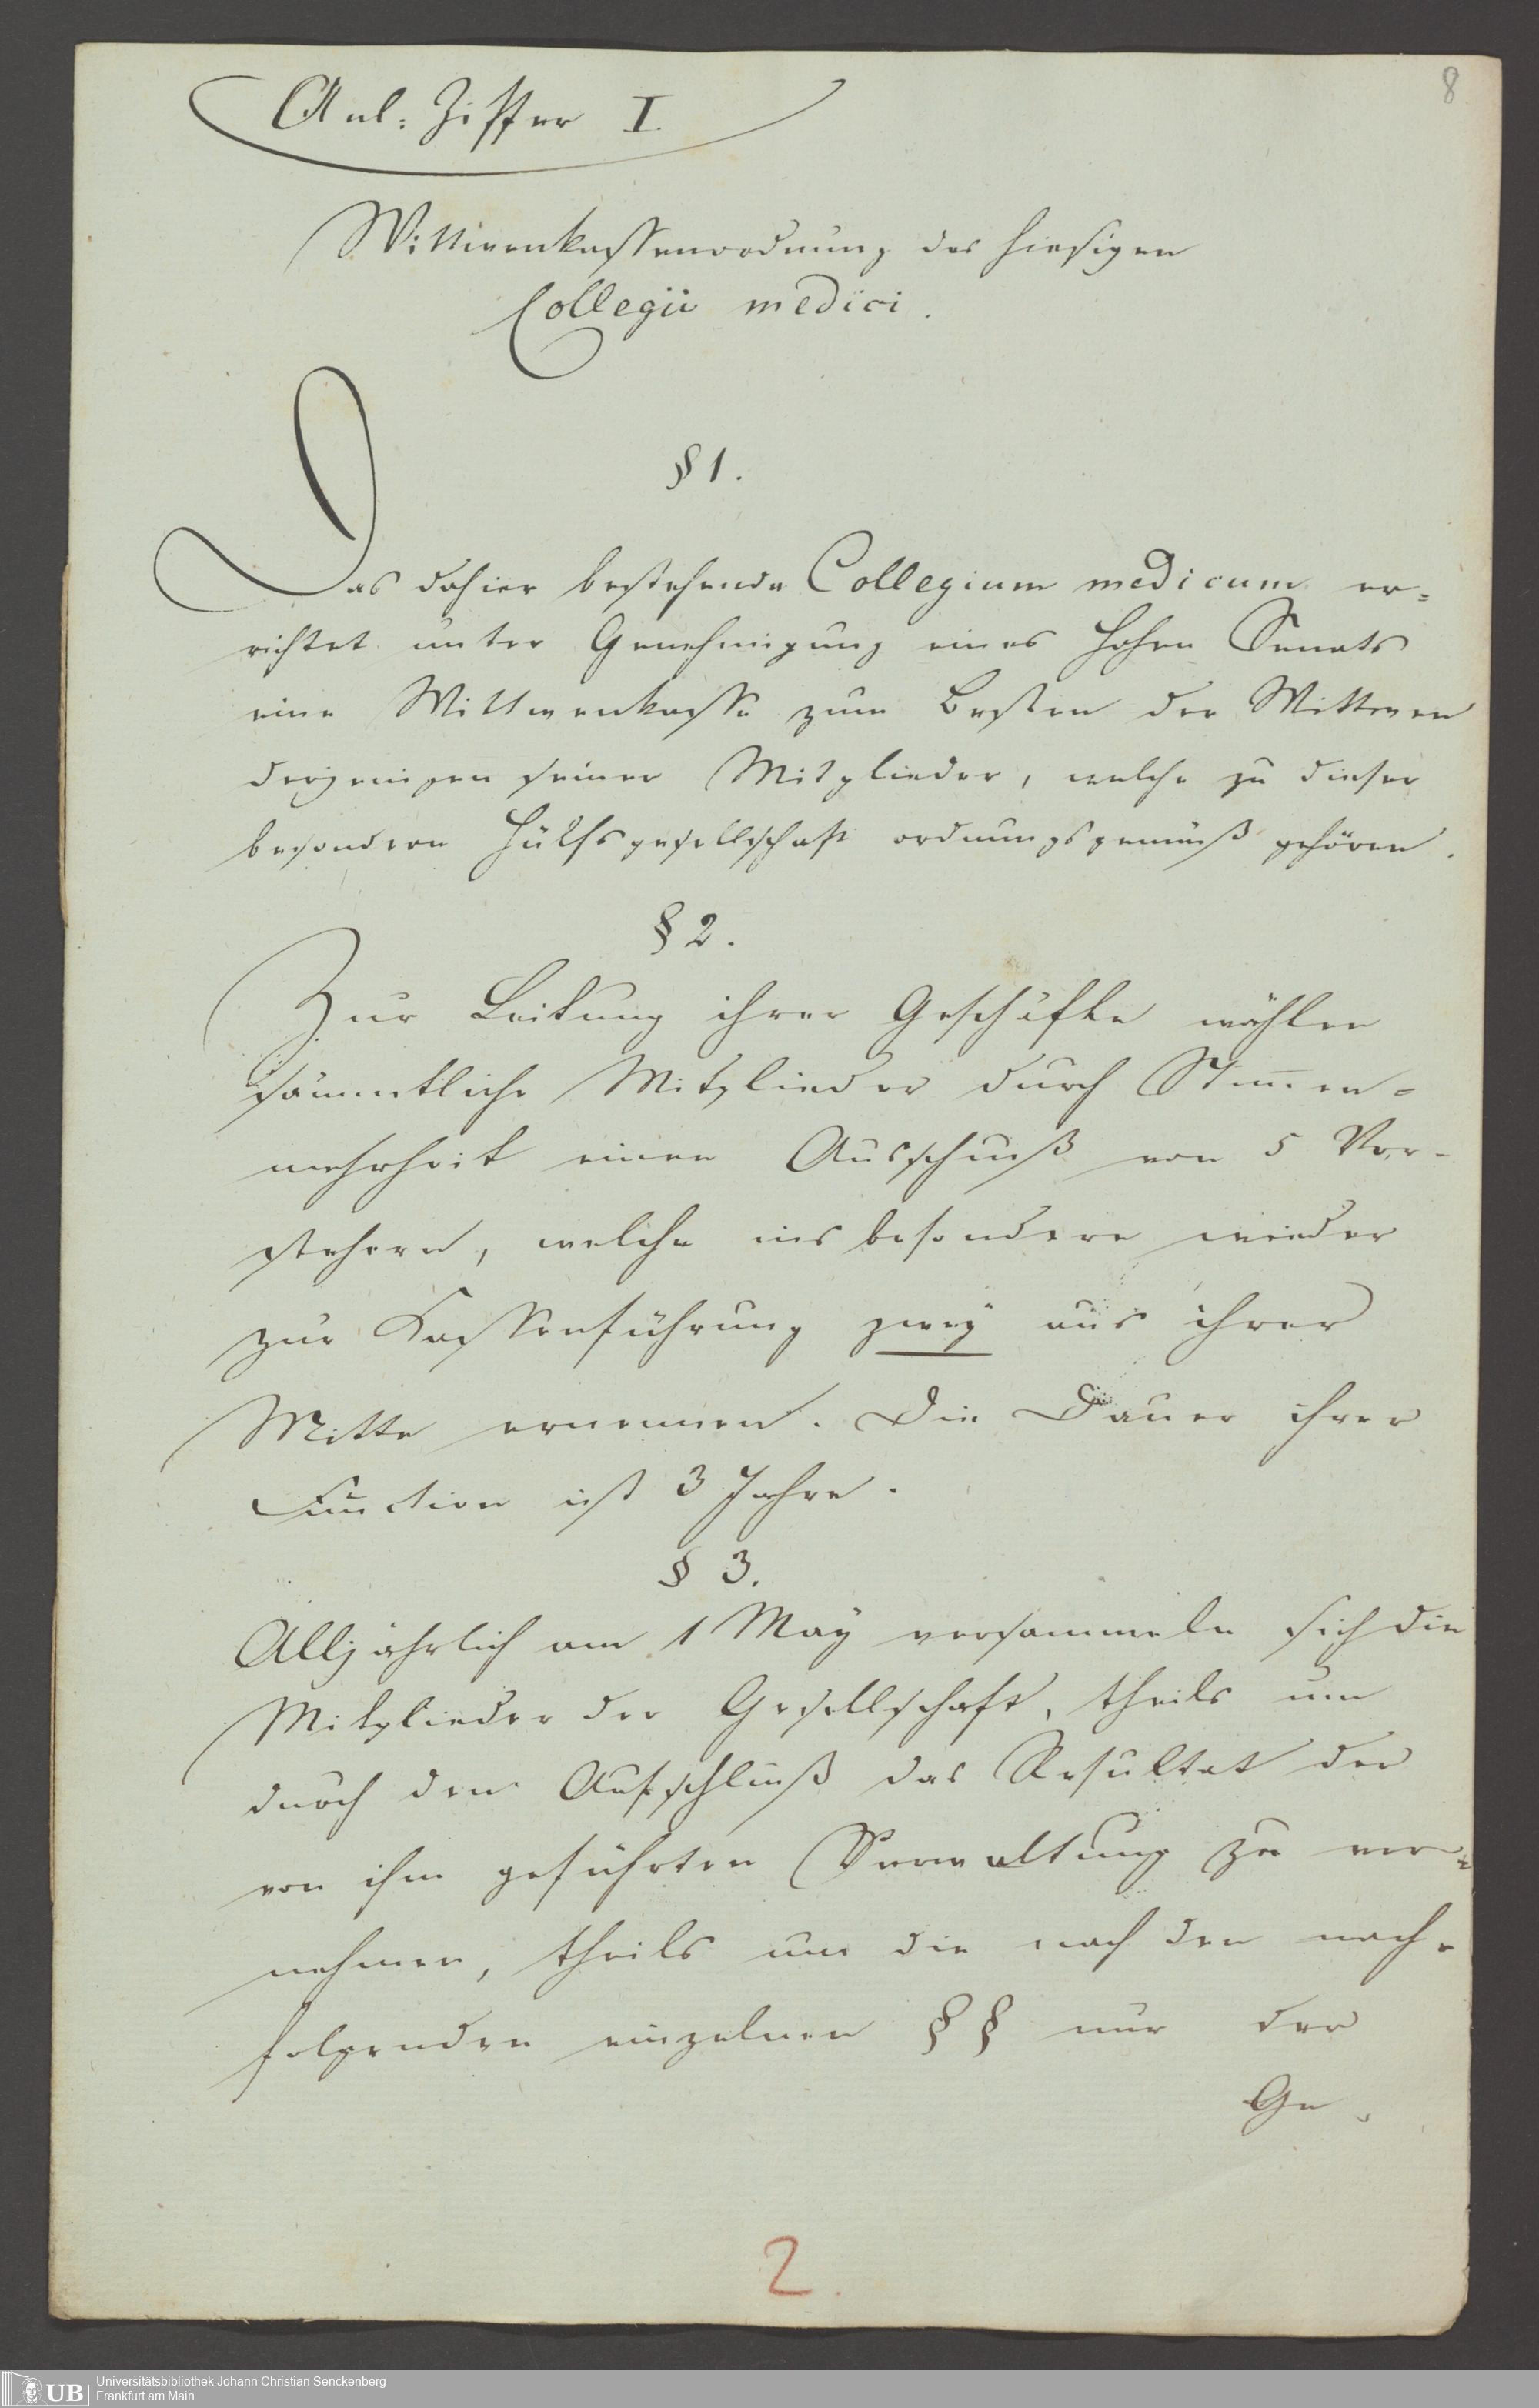 8
Anl. Ziffer I.
Wittwenkassenordnung des hiesigen
Collegii medici.
§ 1.
Das dahier bestehende Collegium medicum er=
richtet unter Genehmigung eines Hohen Senats
eine Wittwenkasse zum Besten der Wittwen
derjenigen seiner Mitglieder, welche zu dieser
besondern Hülfsgesellschaft ordnungsgemäß gehören.
§ 2.
Zur Leitung ihrer Geschäfte wählen
sämmtliche Mitglieder durch Stim̅en=
mehrheit einen Ausschuß von 5 Vor-
stehern, welche ins besondere wieder
zur Kassenführung zwey aus ihrer
Mitte ernennen. Die Dauer ihrer
Function ist 3 Jahre.
§ 3.
Alljährlich am 1 May versammeln sich die
Mitglieder der Gesellschaft, theils um
durch den Ausschuß das Resultat der
von ihm geführten Verwaltung zu ver=
nehmen, theils um die nach den nach=
folgenden einzelnen §§ nur der
Ge=
2.
Universitätsbibliothek Johann Christian Senckenberg
Frankfurt am Main
UB